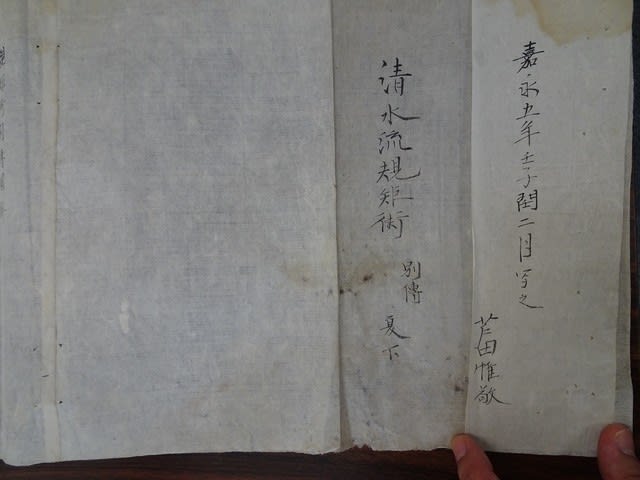 嘉永五年壬子閏二月写之
芦田惟敬
清水流規矩術
別傳
夏下